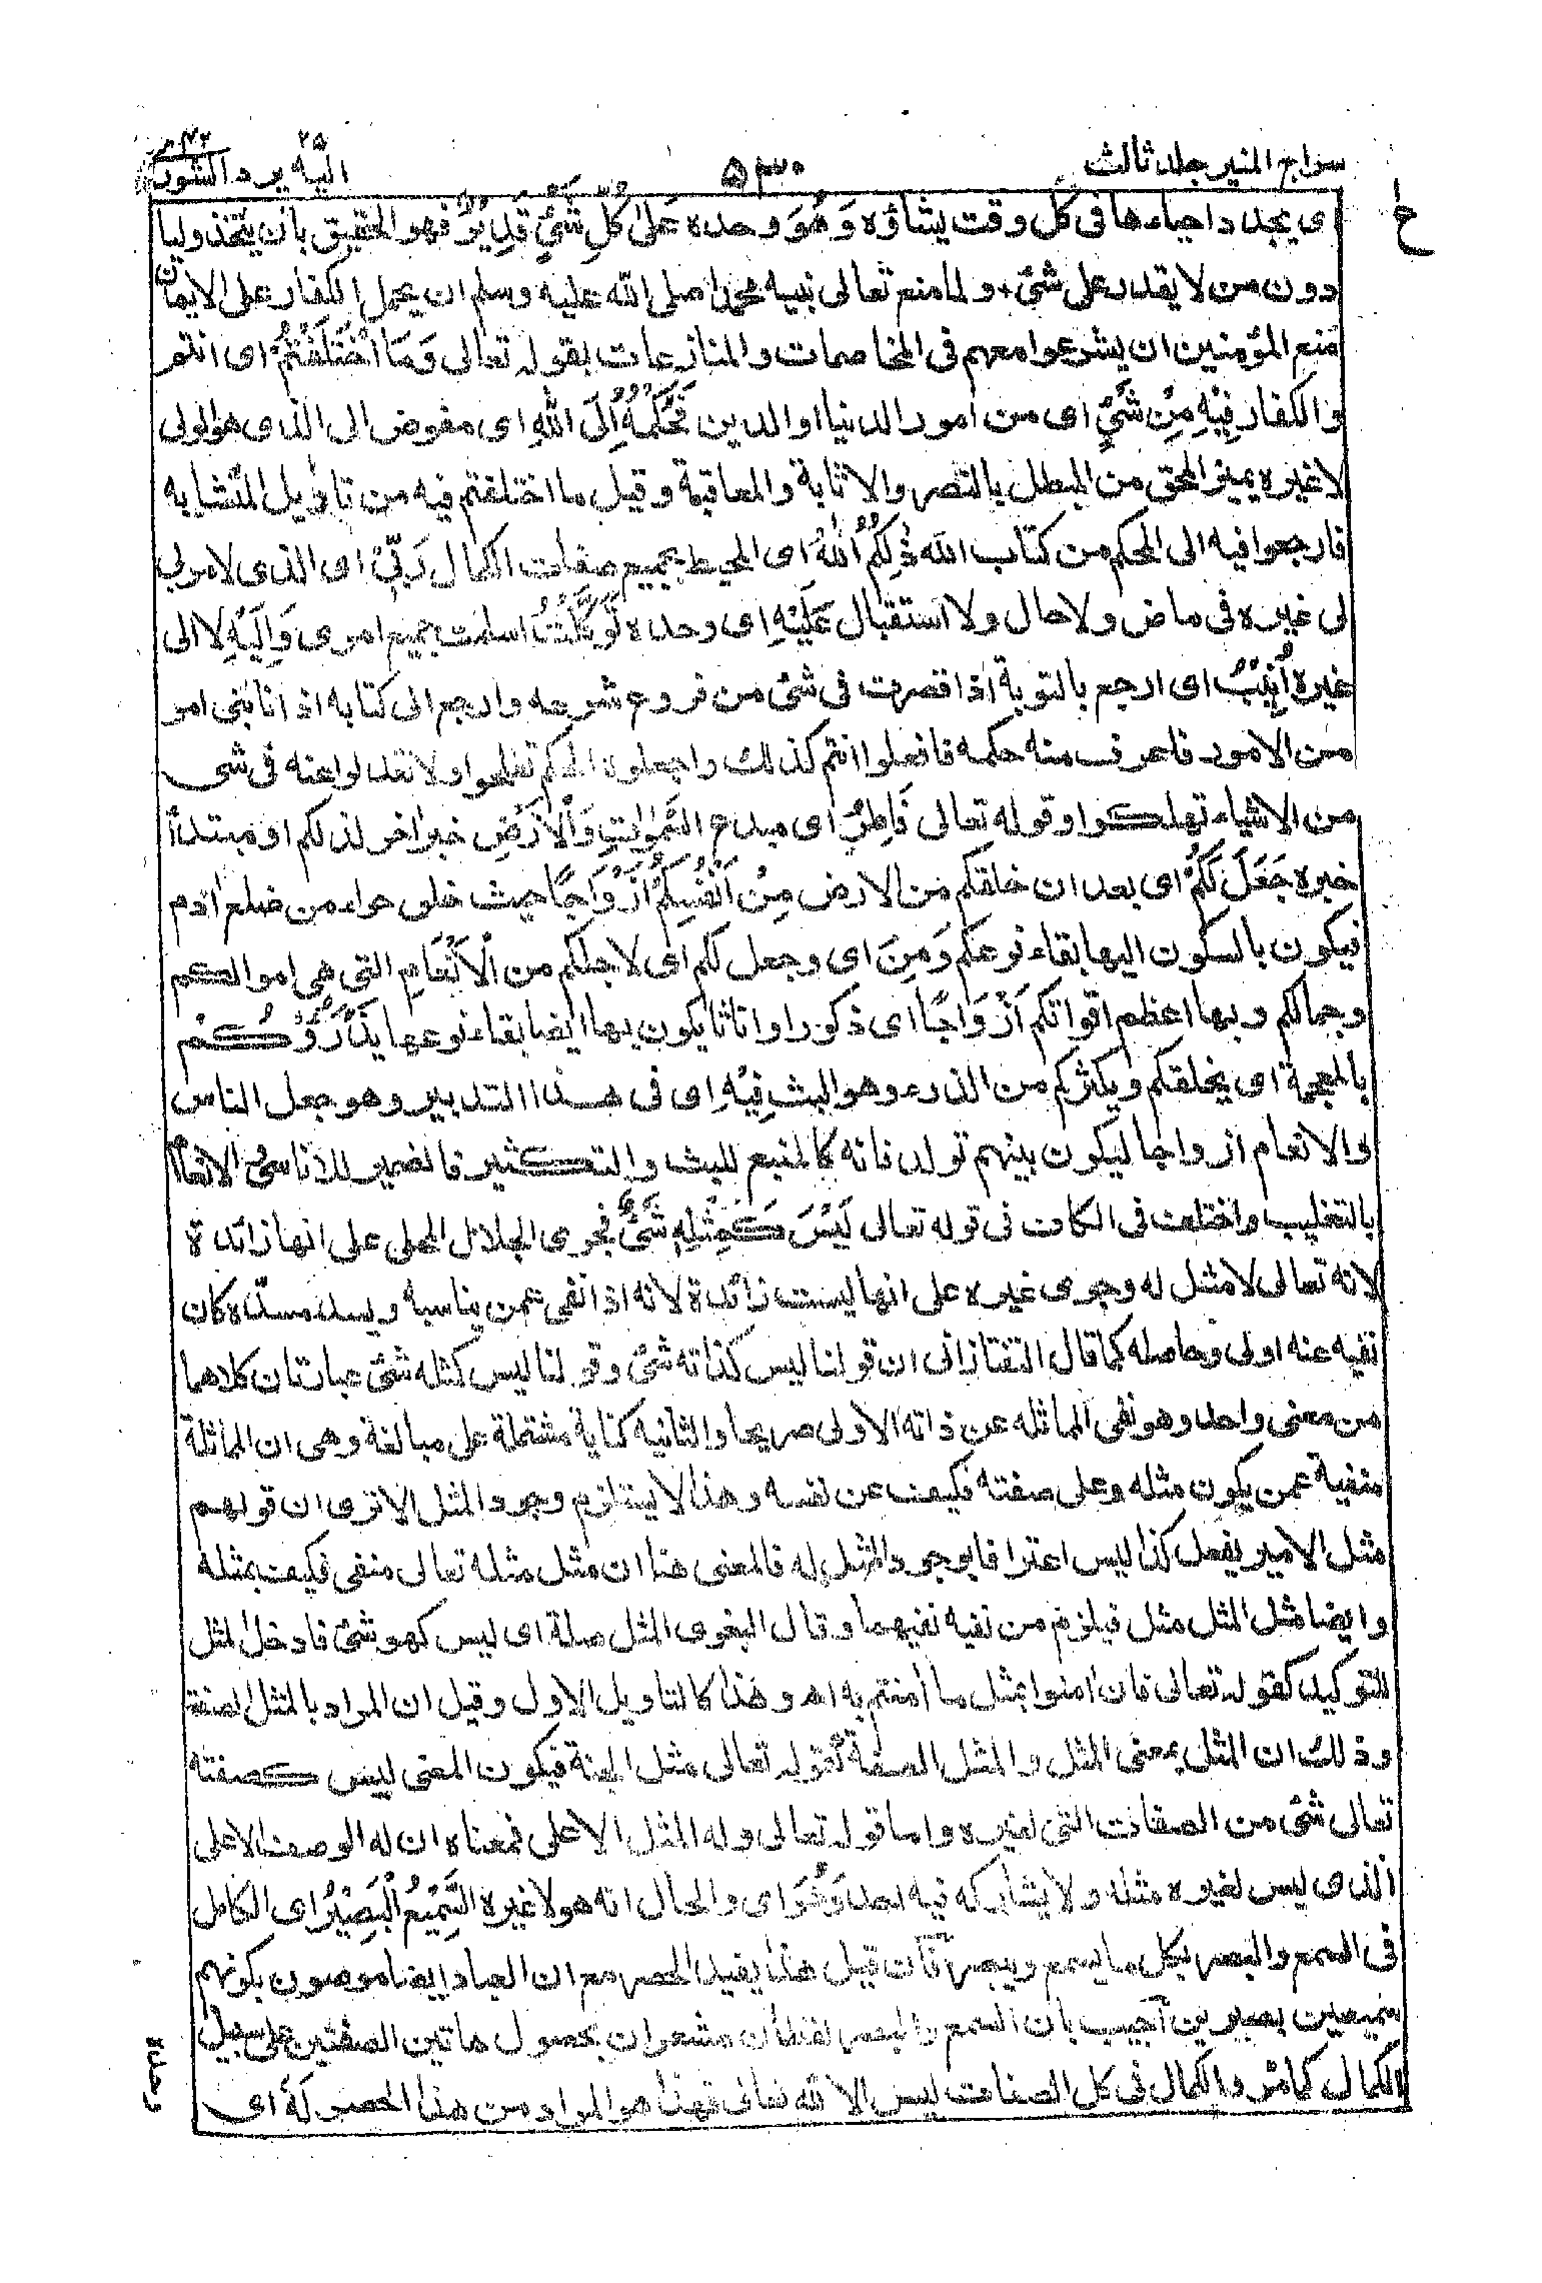 سراج المنير جلد ثالث
۵۳۰
اليه يرد ۲۵
الشورى ۴۲
ع
اى يجدد احياءها فى كل وقت يشاؤه وَهُوَ وحده عَلىٰ كُلِّ شَىْءٍ قَدِيْرٌ فهو الحقيق بان يتخذ وليا
دون من لا يقدر على شئ ولما منع تعالى نبيه محمدا صلى الله عليه وسلم ان يحمل الكفار على الايمان
منع المؤمنين ان يشرعوا معهم فى المخاصمات والمنازعات بقوله تعالى وَمَا اخْتَلَفْتُمْ اى انتم
والكفار فِيْهِ مِنْ شَىْءٍ اى من امور الدنيا او الدين فَحُكْمُهٗ اِلَى اللهِ اى مفوض الى الذى هو الولى
لا غيره يميز المحق من المبطل بالنصر والاثابة والمعاقبة وقيل ما اختلفتم فيه من تاويل المتشابه
فارجعوا فيه الى المحكم من كتاب الله ذٰلِكُمُ اللهُ اى المحيط بجميع صفات الكمال رَبِّىْ اى الذى لا مربى
لى غيره فى ماض ولا حال ولا استقبال عَلَيْهِ اى وحده تَوَكَّلْتُ اسلمت جميع امرى وَاِلَيْهِ لا الى
غيره اُنِيْبُ اى ارجع بالتوبة اذا قصرت فى شئ من فروع شرعه وارجع الى كتابه اذا نابنى امر
من الامور فاعرف منه حكمه فافعلوا انتم كذلك واجعلوه الحكم تفلحوا ولا تعدلوا عنه فى شى
من الاشياء تهلكوا وقوله تعالى فَاطِرُ اى مبدع السَّمٰوٰتِ وَالْاَرْضِ خبر اخر لذلكم او مبتدأ
خبره جَعَلَ لَكُمْ اى بعد ان خلقكم من الارض مِنْ اَنْفُسِكُمْ اَزْوَاجًا حيث خلق حواء من ضلع اٰدم
فيكون بالسكون اليها بقاء نوعكم وَمِنَ اى وجعل لكم اى لاجلكم من الْاَنْعَامِ التى هى اموالكم
وجمالكم وبها اعظم اقواتكم اَزْوَاجًا اى ذكورا واناثا يكون بها ايضا بقاء نوعها يَذْرَؤُكُمْ
بالمعجمة اى يخلقكم ويكثركم من الذرء وهو البث فِيْهِ اى فى هذا التدبير وهو جعل الناس
والانعام ازواجا ليكون بينهم تولد فانه كالمنبع للبث والتكثير فالضمير للاناسى والانعام
بالتغليب واختلف فى الكاف فى قوله تعالى لَيْسَ كَمِثْلِهٖ شَىْءٌ فجرى الجلال المحلى على انها زائدة
لانه تعالى لا مثل له وجرى غيره على انها ليست زائدة لانه اذا نفى عمن يناسبه ويسد مسده كان
نفيه عنه اولى وحاصله كما قال التفتازانى ان قولنا ليس كذاته شئ وقولنا ليس كمثله شئ عبارتان كلاهما
من معنى واحد وهو نفى المماثله عن ذاته الاولى صريحا والثانيه كناية مشتملة على مبالغة وهى ان المماثلة
منفية عمن يكون مثله وعلى صفته فكيف عن نفسه وهذا لا يستلزم وجود المثل الا ترى ان قولهم
مثل الامير يفعل كذا ليس اعترافا بوجود المثل له فالمعنى هنا ان مثل مثله تعالى منفى فكيف بمثله
وايضا مثل المثل مثل فيلزم من نفيه نفيهما وقال البغوى المثل صلة اى ليس كهو شئ فادخل المثل
للتوكيد كقوله تعالى فان اٰمنوا بمثل ما اٰمنتم به اه وهذا كالتاويل الاول وقيل ان المراد بالمثل الصفة
وذلك ان المثل بمعنى المثل والمثل الصفة كقوله تعالى مثل الجنة فيكون المعنى ليس كصفته
تعالى شئ من الصفات التى لغيره واما قوله تعالى وله المثل الاعلى فمعناه ان له الوصف الاعلى
الذى ليس لغيره مثله ولا يشاركه فيه احد وَهُوَ اى والحال انه هو لا غيره السَّمِيْعُ الْبَصِيْرُ اى الكامل
فى السمع والبصر بكل ما يسمع ويبصر فان قيل هذا يفيد الحصر مع ان العباد ايضا موصوفون بكونهم
سميعين بصيرين اجيب بان السمع والبصر لفظان مشعران بحصول هاتين الصفتين على سبيل
الكمال كما مر والكمال فى كل الصفات ليس الا لله تعالى فهذا هو المراد من هذا الحصر لَهٗ اى
وحده